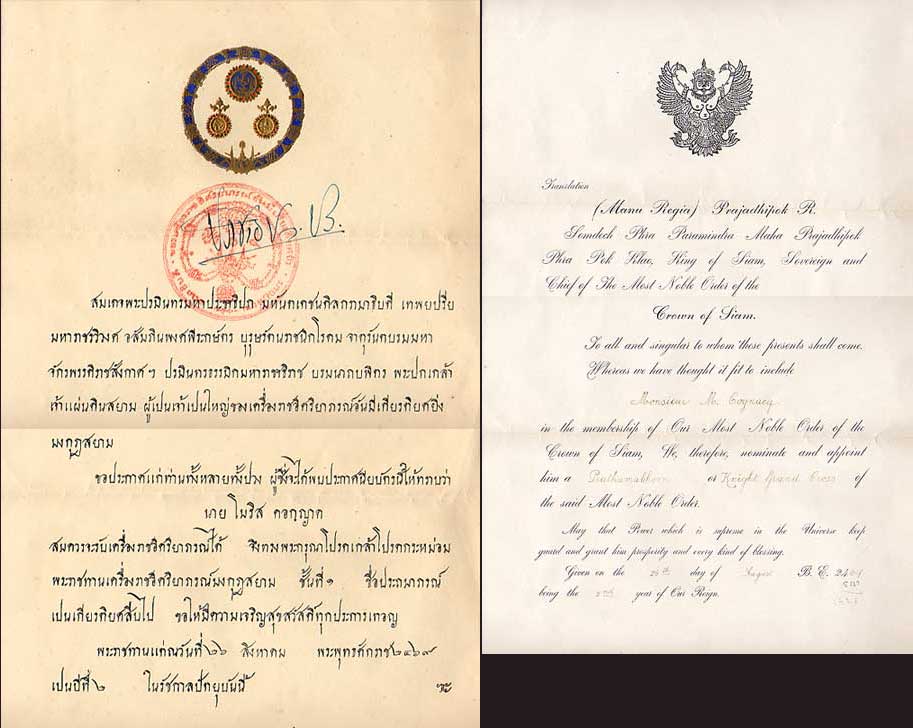 สมเดจพระปรมินทรมหาประชาธิปก มหันตเดชนดิลกรามาธิบดี เทพยปรีย
มหาราชรวิวงศ อสัมภินพงศพีระกษัตร บุรุษรัตนราชนิกโรดม จาตุรันตบรมมหา
จักรพรรดิราชสังกาศฯ ปรมินทรธรรมิกมหาราชาธิราช บรมนาถบพิตร พระปกเกล้า
เจ้าแผ่นดินสยาม ผู้เปนเจ้าเปนใหญ่ของเครื่องราชอิศริยาภรณ์อันมีเกียรติยศยิ่ง
มงกุฎสยาม
ขอประกาศแก่ท่านทั้งหลายทั้งปวง ผู้ซึ่งได้พบประกาศนียบัตรนี้ให้ทราบว่า
นาย โมริส คอกญาค
สมควรจะรับเครื่องราชอิศริยาภรณ์ได้ จึงทรงพระกรุณาโปรดเกล้าโปรดกระหม่อม
พระราชทานเครื่องราชอิศริยาภรณ์มงกุฎสยาม ชั้นที่ ๑ ชื่อประถมาภรณ์
เปนเกียรติยศสืบไป ขอให้มีความเจริญสุขสวัสดิ์ทุกประการเทอญ
พระราชทานแต่ณวันที่ ๒๖ สิงหาคม พระพุทธศักราช ๒๔๖๙
เปนปีที่ ๒ ในรัชกาลปัตยุบันนี้
Translation
(Manu Regia) Prajadhipok R.
Somdech Phra Paramindra Maha Prajadhipok
Phra Pok Klao, King of Siam, Sovereign and
Chief of The Most Noble Order of the
Crown of Siam.
To all and singular to whom these presents shall come.
Whereas we have thought it fit to include
Monsieur M. Cognacq
in the membership of Our Most Noble Order of the
Crown of Siam, We, therefore, nominate and appoint
him a Prathamabhorn or Knight Grand Cross of
the said Most Noble Order.
May that Power which is supreme in the Universe keep
guard and grant him prosperity and every kind of blessing.
Given on the 26th day of August B. E. 2469
being the 2nd year of Our Reign.